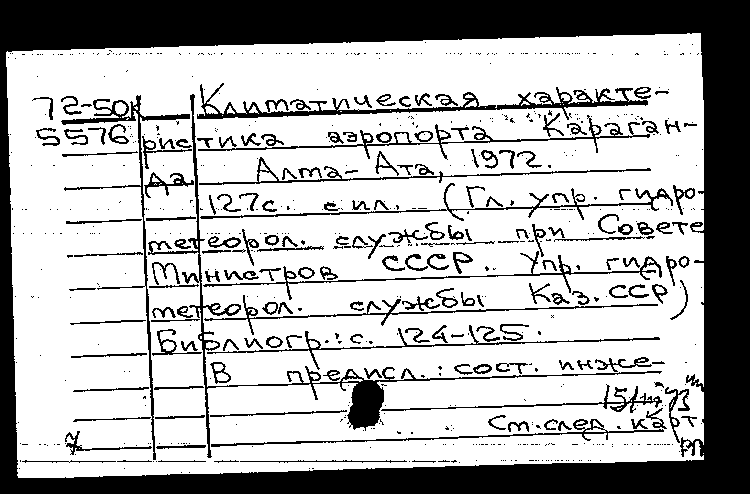 72-50к Климатическая характе-
5576 ристика аэропорта Караган-
да. Алма-Ата, 1972.
127с. с ил. (Гл. упр. гидро-
метеорол. службы при Совете
Министров СССР. Упр. гидро-
метеорол. службы Каз.ССР).
Библиогр.: с. 124-125.
В предисл.: сост. инже-
См.след. карт.